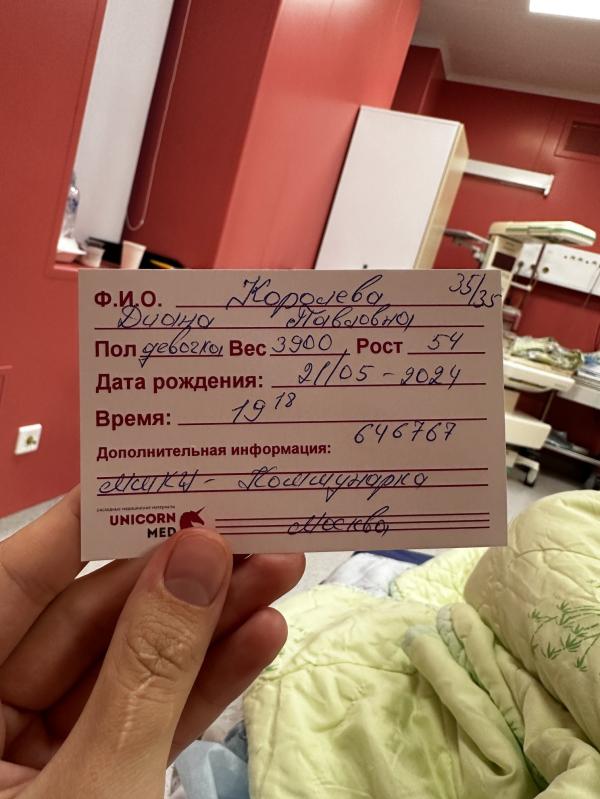 Ф.И.О. Королева 35/35
Диана Павловна
Пол девочка Вес 3900 Рост 54
Дата рождения: 21/05-2024
Время: 19 18
646767
Дополнительная информация:
ММКЦ - Коммунарка
расходные медицинские материалы
UNICORN
MED
Москва